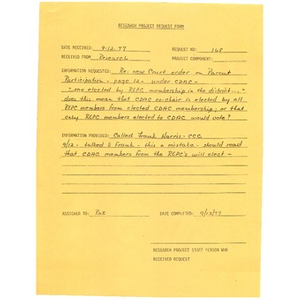 RESEARCH PROJECT REQUEST FORM
DATE RECEIVED: 9-12-77 REQUEST NO: 168
RECEIVED FROM: Research PRODUCT COMPONENT:
INFORMATION REQUESTED: Re: new Court order on Parent
Participation - page 12 - under CDAC -
"one elected by REPC membership in the district" --
does this mean that CDAC co-chair is elected by all
REPC members from elected CDAC membership, or that
only REPC members elected to CDAC would vote?
INFORMATION PROVIDED: Called Frank Harris - CCC
9/12 - talked to Frank - this a mistake - should read
that CDAC members from the REPC's will elect -
ASSIGNED TO: DATE COMPLETED: 9/12/77
RESEARCH PROJECT STAFF PERSON WHO
RECEIVED REQUEST